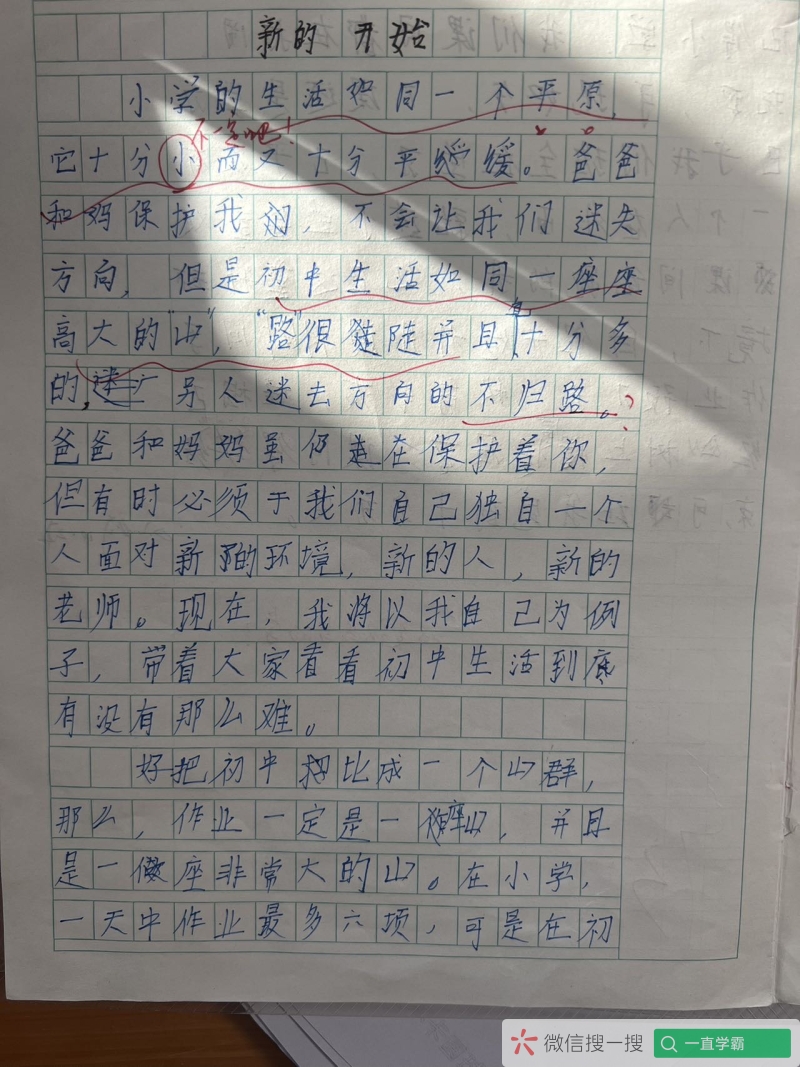 新的 开始
小学的生活如同一个平原，
不一定吧！
它十分小而又十分平缓。爸爸
和妈保护我们，不会让我们迷失
方向，但是初中生活如同一座座
高大的“山”，“路”很陡并且十分多
的，另人迷去方向的不归路。？
爸爸和妈妈虽仍在保护着你，
但有时必须于我们自己独自一个
人面对新的环境，新的人，新的
老师。现在，我将以我自己为例
子，带着大家看看初中生活到底
有没有那么难。
好把初中比成一个山群，
那么，作业一定是一座山，并且
是一座非常大的山。在小学，
一天中作业最多六项，可是在初
微信搜一搜
一直学霸